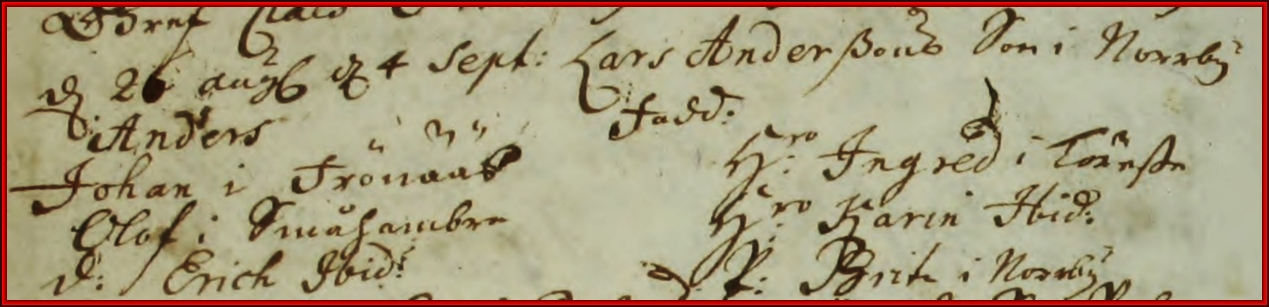 d. 26 aug & 4 Sept: Lars Anderßons Son i Norrby
Anders
Fadd:
Johan i Frönääs
H:ro Ingred i
Olof i Småhambre
H:ro Karin Ibid:
d: Erich Ibid:
P: Brita i Norrby